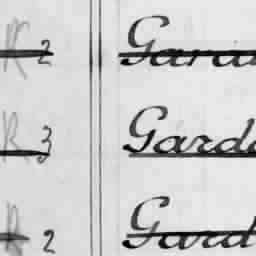 R 2 Gard
R 3 Garde
R 2 Gard